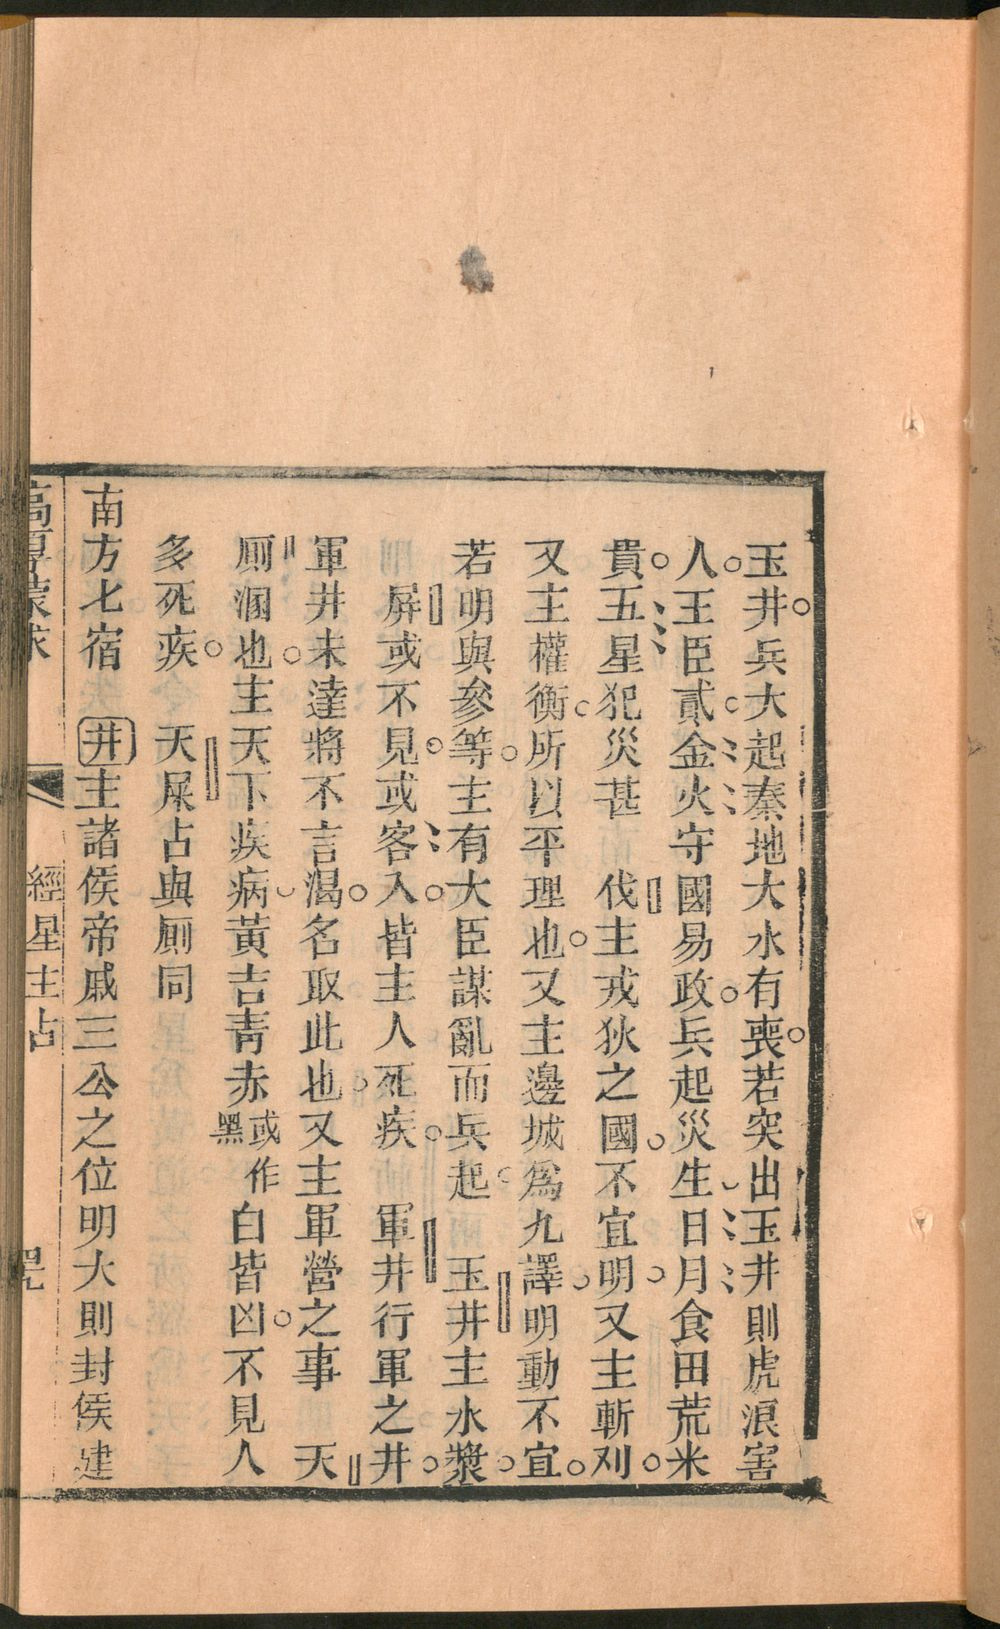 玉井兵大起秦地大水有喪若突出玉井則虎浪害
人王臣貳金火守國易政兵起災生日月食田荒米
貴五星犯災甚　伐主戎狄之國不宜明又主斬刈
又主權衡所以平理也又主邊城爲九譯明動不宜
若明與參等主有大臣謀亂而兵起　玉井主水漿
屏或不見或客入皆主人死疾　軍井行軍之井
軍井未達將不言渴名取此也又主軍營之事　天
厠溷也主天下疾病黃吉青赤或作黑白皆凶不見人
多死疾　天屎占與厠同
南方七宿　井主諸侯帝戚三公之位明大則封侯建
高厚蒙求　經星主占